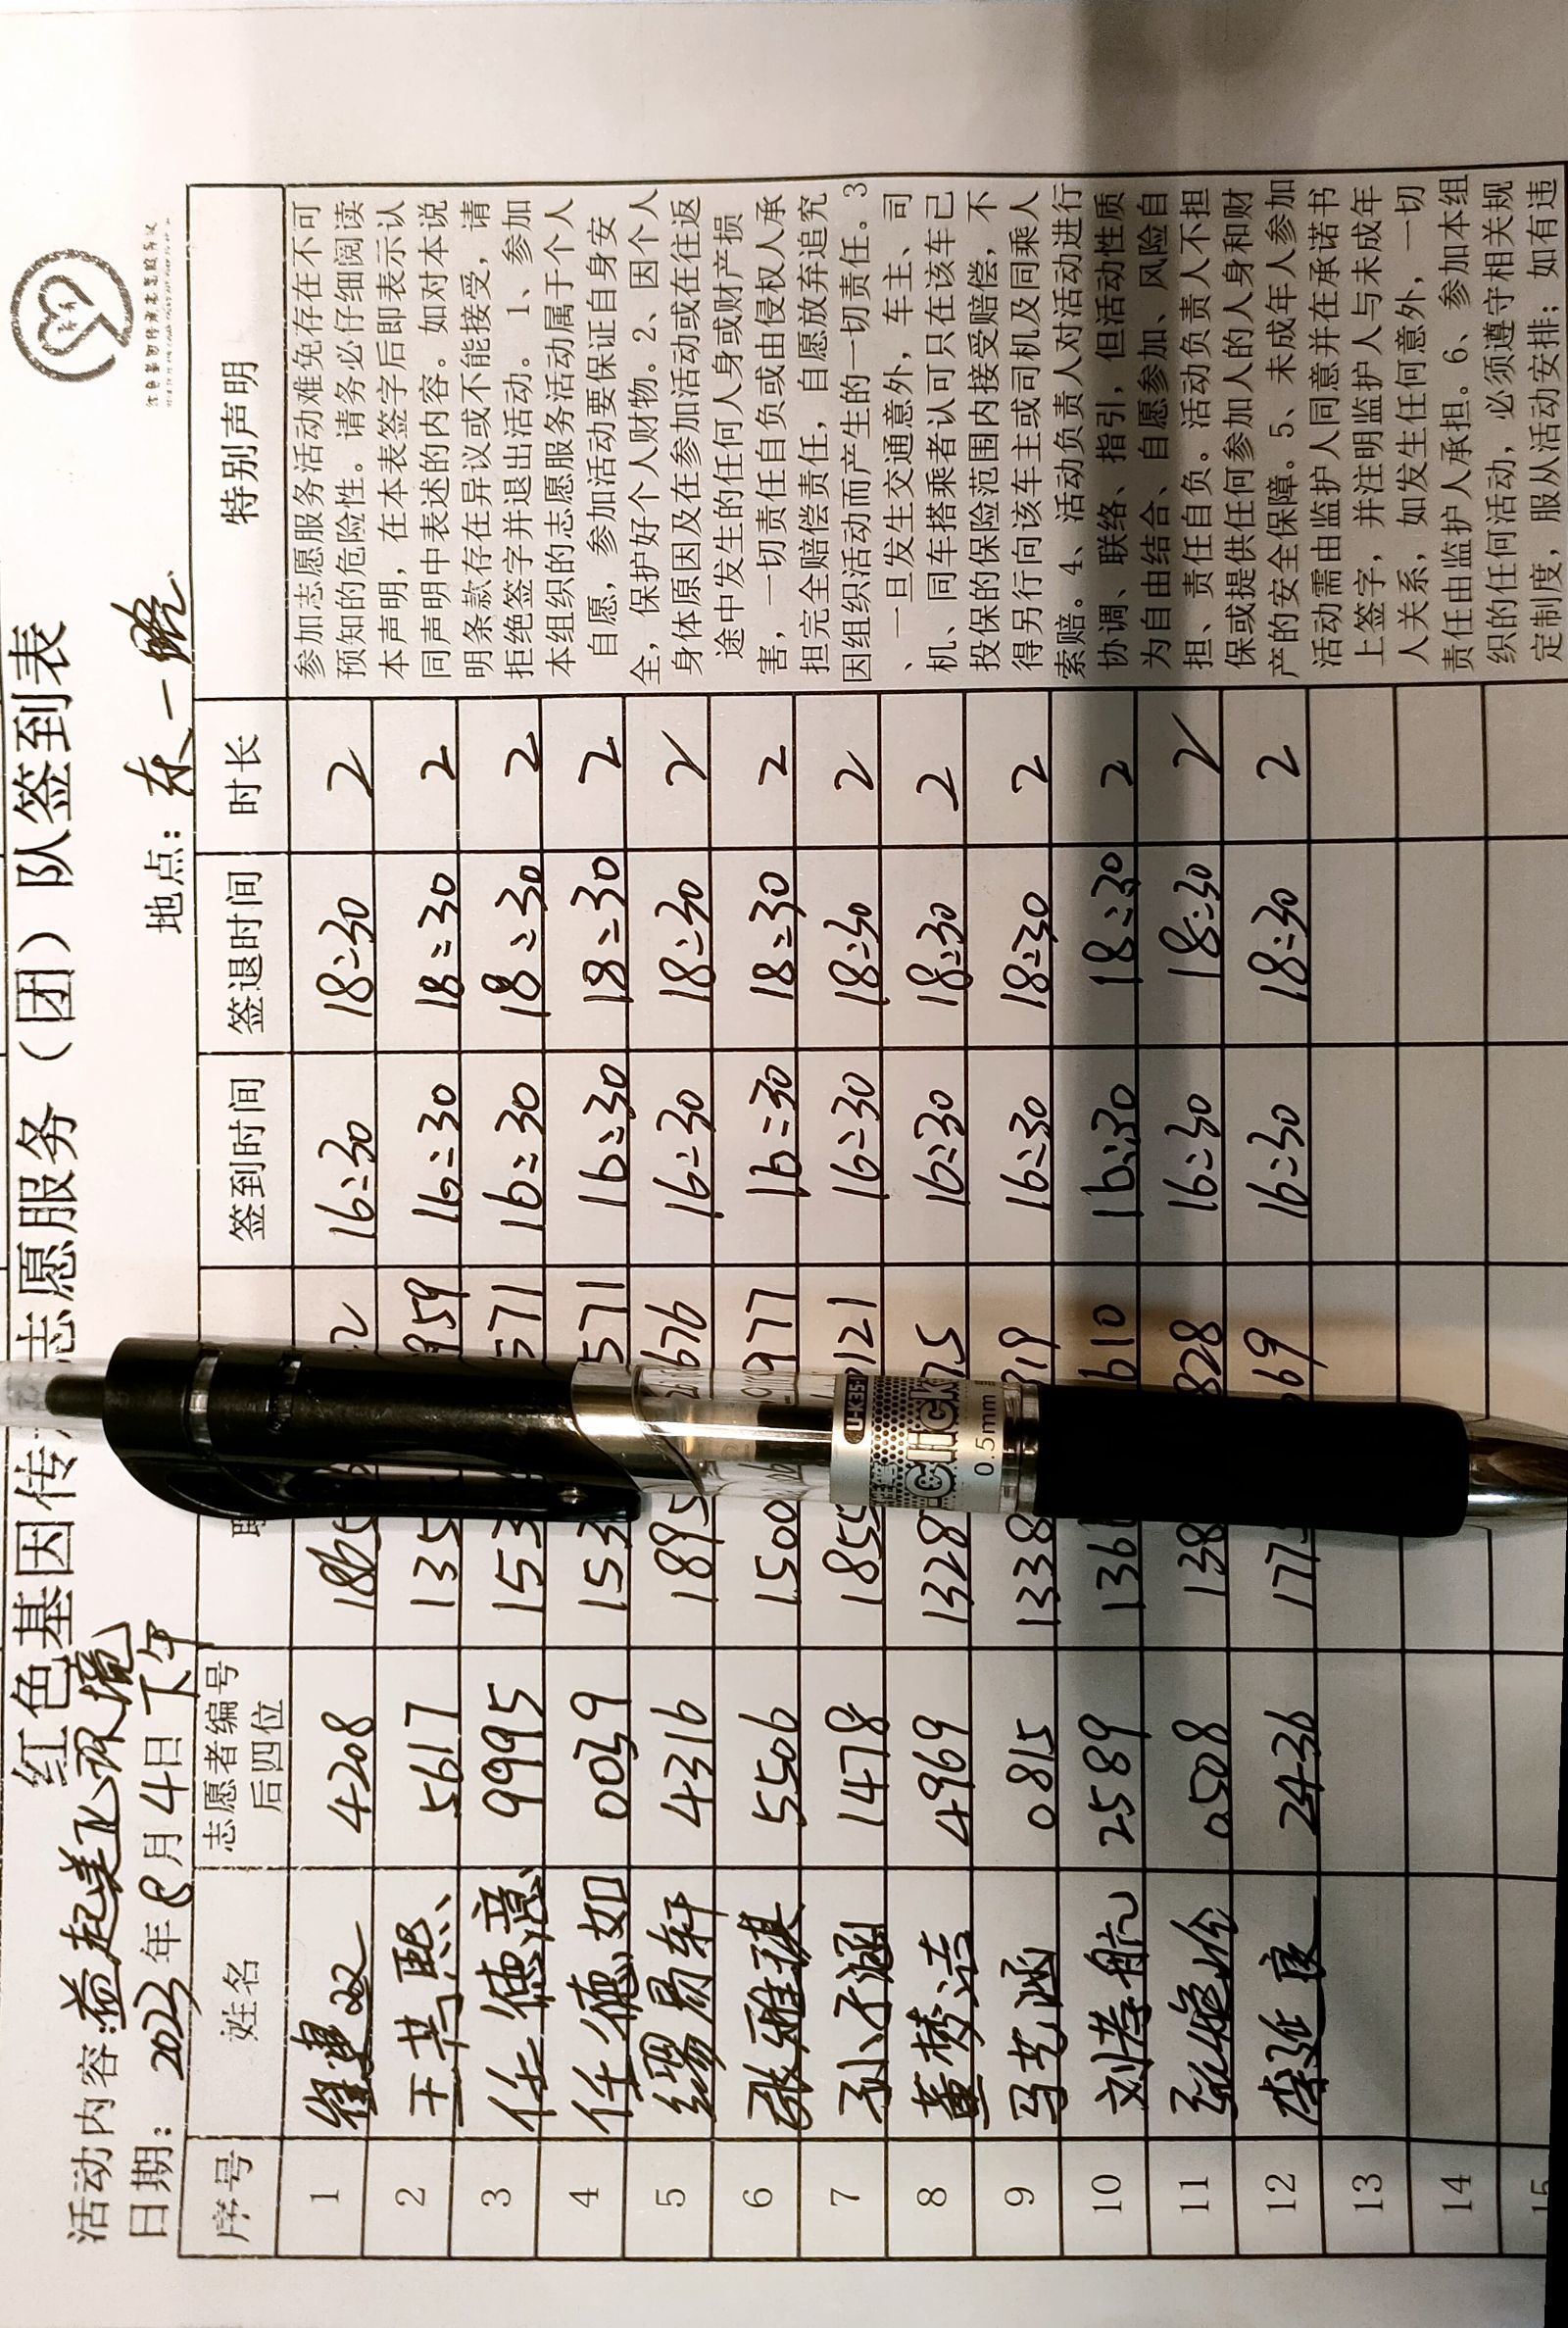 红色基因传 志愿服务（团）队签到表
活动内容：益起美化环境
日期：2023年8月4日下午 地点：东一路
序号 姓名 志愿者编号后四位 签到时间 签退时间 时长 特别声明
1 4208 1865 2 16:30 18:30 2
2 王其熙 5617 135 959 16:30 18:30 2
3 任德意 9995 153 571 16:30 18:30 2
4 任德如 0039 153 571 16:30 18:30 2
5 缪易轩 4316 1895 676 16:30 18:30 2
6 张雅琪 5506 1500 977 16:30 18:30 2
7 孙子涵 1478 1855 121 16:30 18:30 2
8 董梦洁 4969 1328 75 16:30 18:30 2
9 马艺涵 0815 1338 319 16:30 18:30 2
10 刘孝航 2589 136 610 16:30 18:30 2
11 0508 138 828 16:30 18:30 2
12 李延庚 2436 177 669 16:30 18:30 2
13
14
15
参加志愿服务活动难免存在不可
预知的危险性。请务必仔细阅读
本声明，在本表签字后即表示认
同声明中表述的内容。如对本说
明条款存在异议或不能接受，请
拒绝签字并退出活动。1、参加
本组织的志愿服务活动属于个人
自愿，参加活动要保证自身安
全，保护好个人财物。2、因个人
身体原因及在参加活动或在往返
途中发生的任何人身或财产损
害，一切责任自负或由侵权人承
担完全赔偿责任，自愿放弃追究
因组织活动而产生的一切责任。3
、一旦发生交通意外，车主、司
机、同车搭乘者认可只在该车已
投保的保险范围内接受赔偿，不
得另行向该车主或司机及同乘人
索赔。4、活动负责人对活动进行
协调、联络、指引，但活动性质
为自由结合、自愿参加、风险自
担、责任自负。活动负责人不担
保或提供任何参加人的人身和财
产的安全保障。5、未成年人参加
活动需由监护人同意并在承诺书
上签字，并注明监护人与未成年
人关系，如发生任何意外，一切
责任由监护人承担。6、参加本组
织的任何活动，必须遵守相关规
定制度，服从活动安排；如有违
U-K35
CLICK
0.5mm